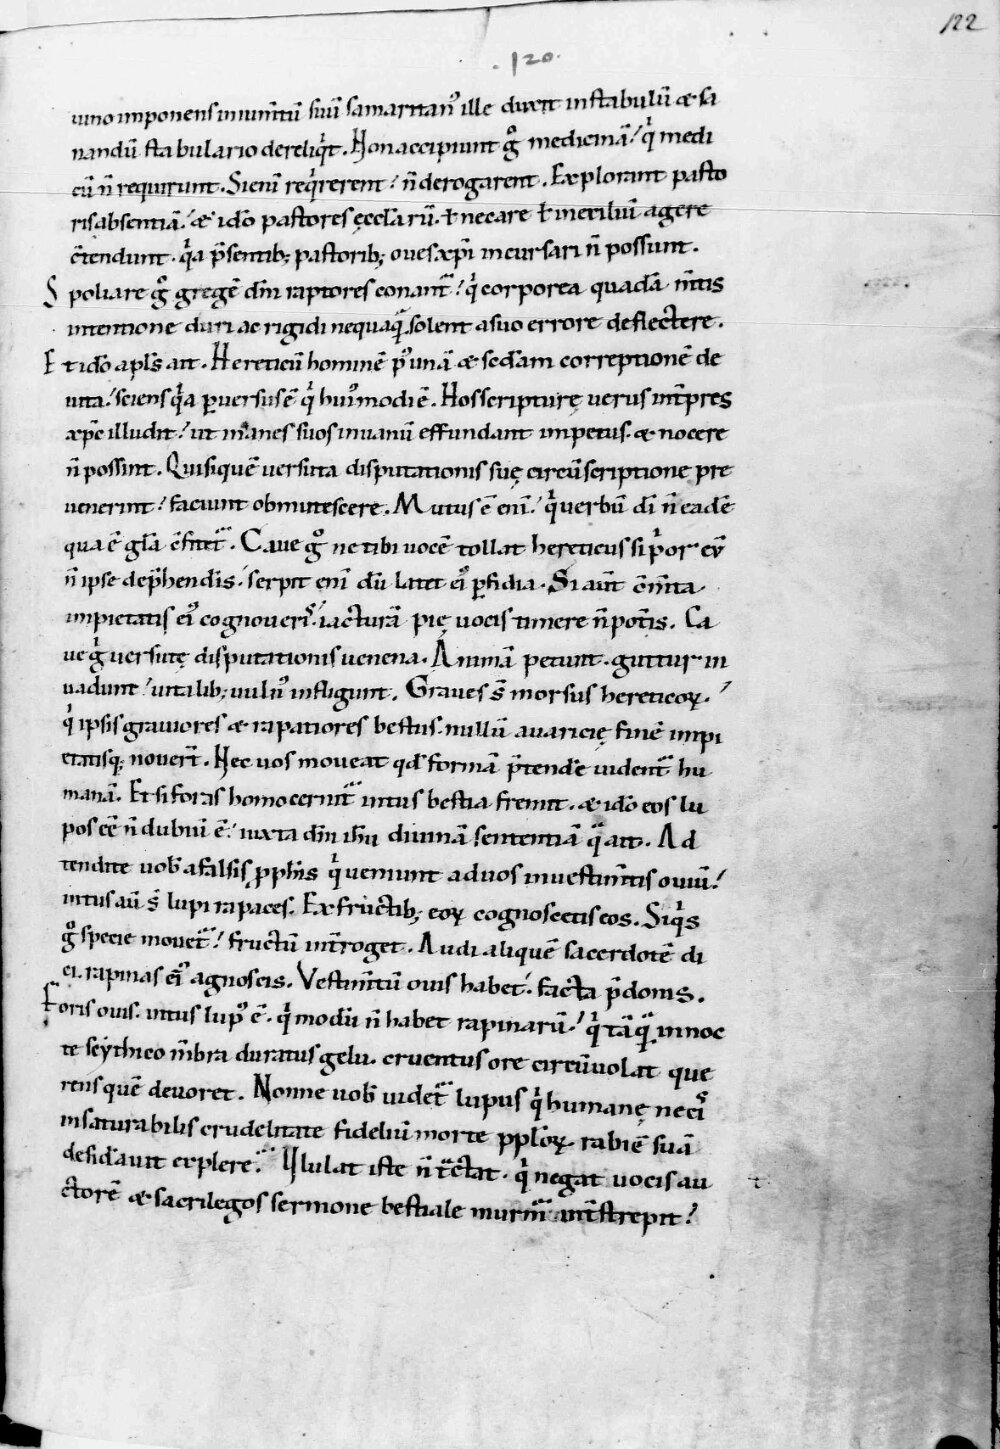 122
.120.
uino imponens iniumtū suū samaritan᾿ ille duxit in stabulū & sa
nandū stabulario dereliq̇t. Non accipiunt g̊ medicinā! q̇ medi
cū n̄ requirunt. Si enī req̇rerent! n̄ derogarent. Explorant pasto
ris absentiā! & idō pastores ęcclaꝝ̄. ł necare ł in exiliū agere
c̄tendunt. q̇a p̄sentib; pastorib; oues xp̄i incursari n̄ possunt.
Spoliare g̊ gregē dn̄i raptores conant᷑! q̇ corporea quadā m̄tis
intentione duri ac rigidi nequaq̄ solent a suo errore deflectere.
Et idō apl̄s ait. Hereticū hominē p᾿ unā & sc̄dam correptionē de
uita! sciens q̇a ꝑuersus ē q̇ hui᾿modi ē. Hos scripturę uerus int̄pres
xp̄c illudit! ut inanes suos in uanū effundant impetus. & nocere
n̄ possint. Quisi quē uersuta disputationis suę circūscriptione pre
uenerint! faciunt obmutescere. Mutus ē enī! q̇ uerbū dī n̄ eadē
qua ē gl̄a c̄fitet᷑. Caue g̊ ne tibi uocē tollat hereticus si p̄or eū
n̄ ipse dep̄hendis! serpit enī dū latet ei᾿ ꝑfidia. Si aut̄ c̄m̄ta
impietatis ei᾿ cognoueris! iacturā pię uocis timere n̄ pot̄is. Ca
ue g̊ uersutę disputationis uenena. Animā petunt. guttur in
uadunt! uitalib; uuln᾿ infligunt. Graues s̄ morsus hereticoꝝ.!
q̇ ipsis grauiores & rapatiores bestiis. nullū auaricię finē impi
etatisq; nouer̄t. Nec uos moueat qd̄ formā p̄tendere uident᷑ hu
manā. Et si foris homo cernit᷑ intus bestia fremit. & idō eos lu
pos eē n̄ dubiū ē! iuxta dn̄i ih̄u diuinā sententiā q̄ ait. Ad
tendite uob̄ a falsis ꝓph̄is q̇ ueniunt ad uos in uestim̄tis ouiū!
intus aū s̄ lupi rapaces. Ex fructib; eoꝝ cognoscetis eos. Si q̇s
g̊ specie mouet᷑! fructū int̄roget. Audi aliquē sacerdotē di
ci. rapinas ei᾿ agnoscis. Vestim̄tū ouis habet! facta p̄donis.
Foris ouis. intus lup᾿ ē. q̇ modū n̄ habet rapinarū! q̇ tāq̄ in noc
te scythico m̄bra duratus gelu. cruentus ore circūuolat que
rens quē deuoret. Nonne uob̄ uidet᷑ lupus q̇ humanę necis
insaturabilis crudelitate fideliū morte ppl̄oꝝ. rabiē suā
desid̄auit explere! Vlulat iste n̄ t̄ctat. q̇ negat uocis au
ctorē & sacrilegos sermone bestiale murm᷑ int̄strepit!